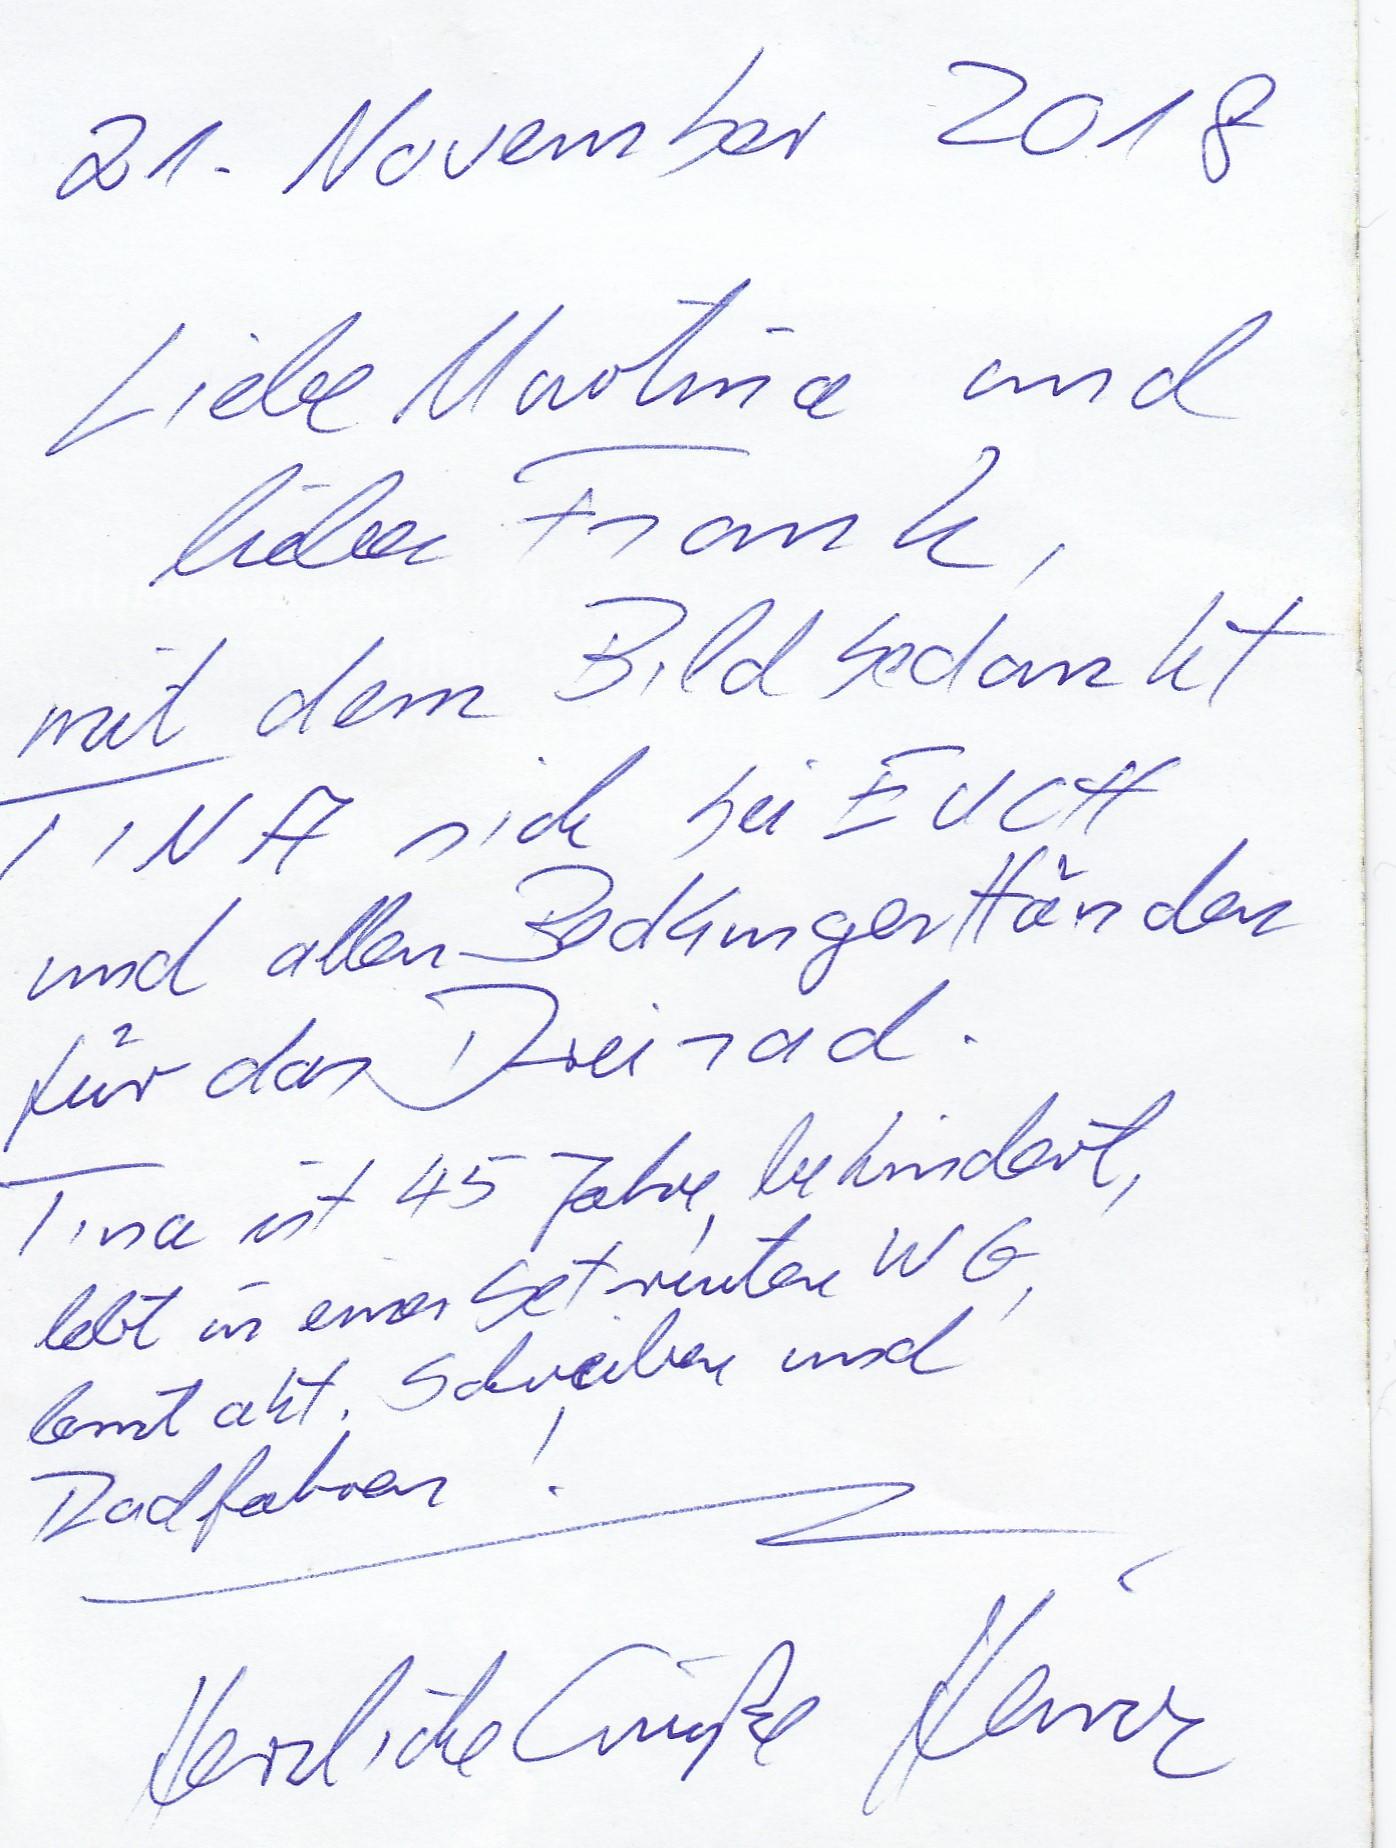 21. November 2018
Liebe Martina und
lieber Frank,
mit dem Bild bedankt
TINA sich bei EUCH
und allen BedburgerHänden
für das Dreirad.
Tina ist 45 Jahre, behindert,
lebt in einer betreuten WG,
lernt akt. Schreiben und
Radfahren!
Herzliche Grüße Heinz